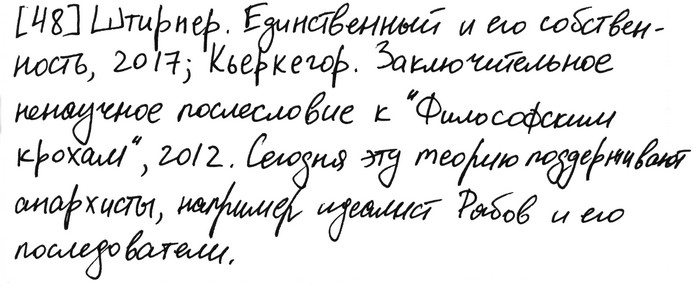 [48] Штирнер. Единственный и его собствен-
ность, 2017; Кьеркегор. Заключительное
ненаучное послесловие к "Философским
крохам", 2012. Сегодня эту теорию поддерживают
анархисты, например идеалист Рябов и его
последователи.